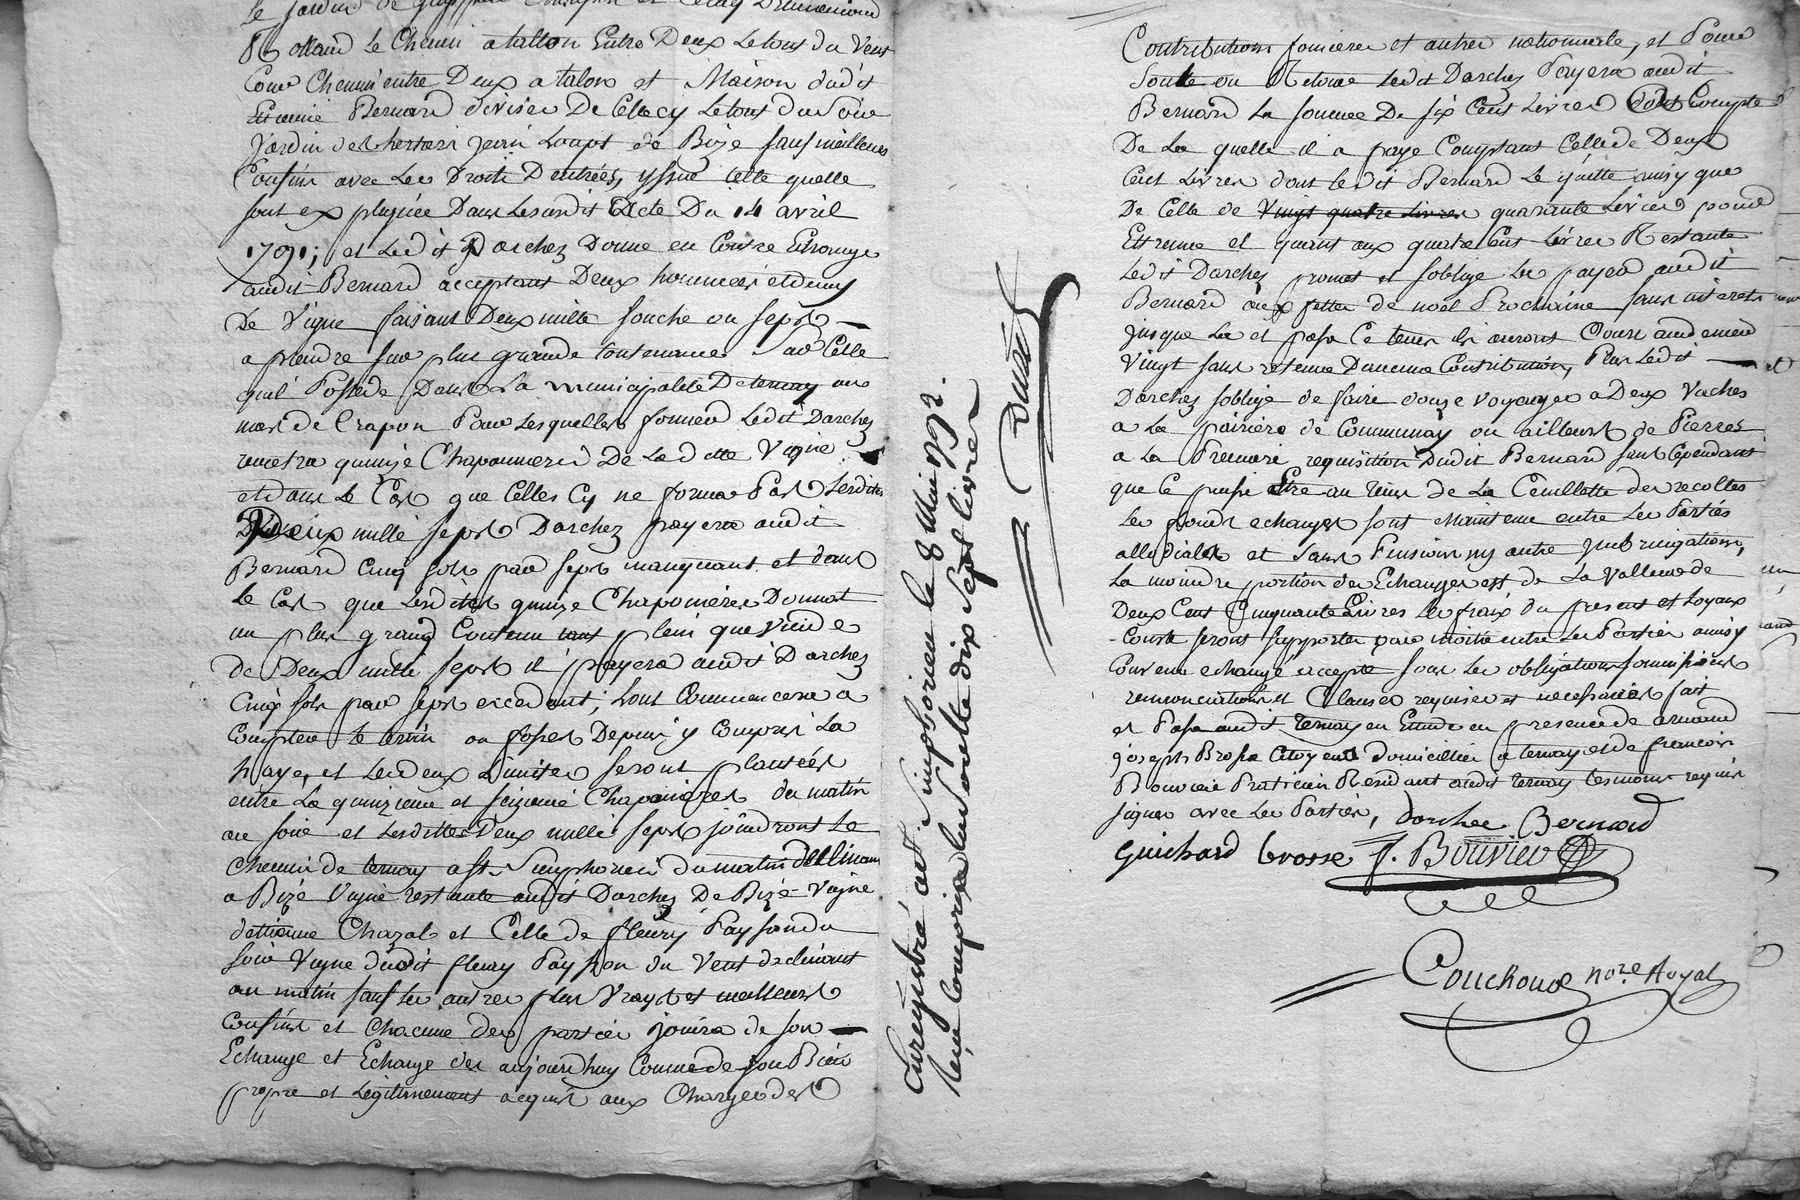 le jardin de
Rolland le Chemin a talon Entre Deux Le tout du Vent
Cour Chemin entre Deux a talon et Maison dudit
Etienne Bernard divisée De Cellecy Le tout du soir
Jardin des heritiers Jean Loup de Bizé sauf meilleurs
Confins avec Les Droits D'entrées, yssüe telle quelle
sont expliquée Dans Lesusdit Acte Du 14 avril
1791; et Ledit Darchez Donne en Contre Echange
audit Bernard acceptant Deux hommées et demy
De Vigne faisant Deux mille souche ou seps
a prendre sur plus grande Contenance sur Celle
qu'il Possede Dans La municipalité De ternay au
mas de Crapon Pour Lesquelles former Ledit Darchez
remetra quinze Chaponnieres De Laditte Vigne
et dans Le Cas que Celles Cy ne forme Pas Lesdites
Deux mille seps Darchez payera audit
Bernard Cinq sols par seps manquant et dans
le Cas que Lesdites quinze Chaponieres Donnat
un plus grand Contenu tant plein que Vuide
de Deux mille seps il payera audit Darchez
Cinq sols par seps excedant; sont Commencera a
Compter le terrin ou fossés Depuis y Compris La
haye, et Les deux Limites seront plantées
entre La quinzieme et seizieme Chaponieres du matin
au soir et Lesdittes Deux mille seps joindront Le
Chemin de ternay a St. Simphorien du matin declinant
a Bizé Vigne restante audit Darchez De Bizé Vigne
d'ettienne Chazal et Celle de fleury Payson du
soir Vigne dudit fleury Payson du Vent declinant
au matin sauf les autres plus Vrayes et meilleurs
Confins et Chacune des parties jouira de son
Echange et Echange des aujourdhuy Comme de son Bien
propre et Legitimement acquis aux Charges des
Enregistré a St. Simphorien le 8 Mai 1792.
Reçu Compris la Soulte dix Sept livres
Contributions foncieres et autres nationnale, et Pour
Soulte ou Retour Ledit Darchez Payera audit
Bernard La somme De six Cent Livres Compte
De La quelle il a payé Comptant Celle de Deux
Cent Livres dont ledit Bernard Le quitte ainsy que
De Celle de Vingt quatre Livres quarante Livres pour
Ettrenne et quant aux quatre Cent Livres Restante
Ledit Darchez promet et s'oblige Les payer audit
Bernard aux fettes de noel Prochaine sans interets
jusque La et passé Ce tems ils auront Cours au denier
Vingt sans retenue D'aucune Contribution, Plus Ledit
Darchez s'oblige de faire douze Voyages a Deux Vaches
a La pairiere de Communay ou ailleurs de Pierres
a La Premiere requisition Dudit Bernard sans Cependant
que Ce puisse Etre au tems de La Ceuillette des recoltes
Les fonds echangés sont Maintenu entre Les Parties
allodiales et sans Pension ny autre Imbrication,
La moindre portion des Echanges est de La Valleur de
Deux Cent Cinquante Livres les fraix du present et Loyaux
Couts seront supportés par moitie entre Les Parties ainsy
Convenu echangé accepté sous Les obligations soumissions
renonciations et Clauses requises et necessaires fait
et Passé audit ternay en Etude en presence de armand
joseph Brosse Citoyens domicilliés a ternay et de francois
Bouvier Praticien Residant audit ternay temoins requis
signés avec Les Parties, Darchez Bernard
Guichard brosse f. Bouvier
Couchoud nore Royal